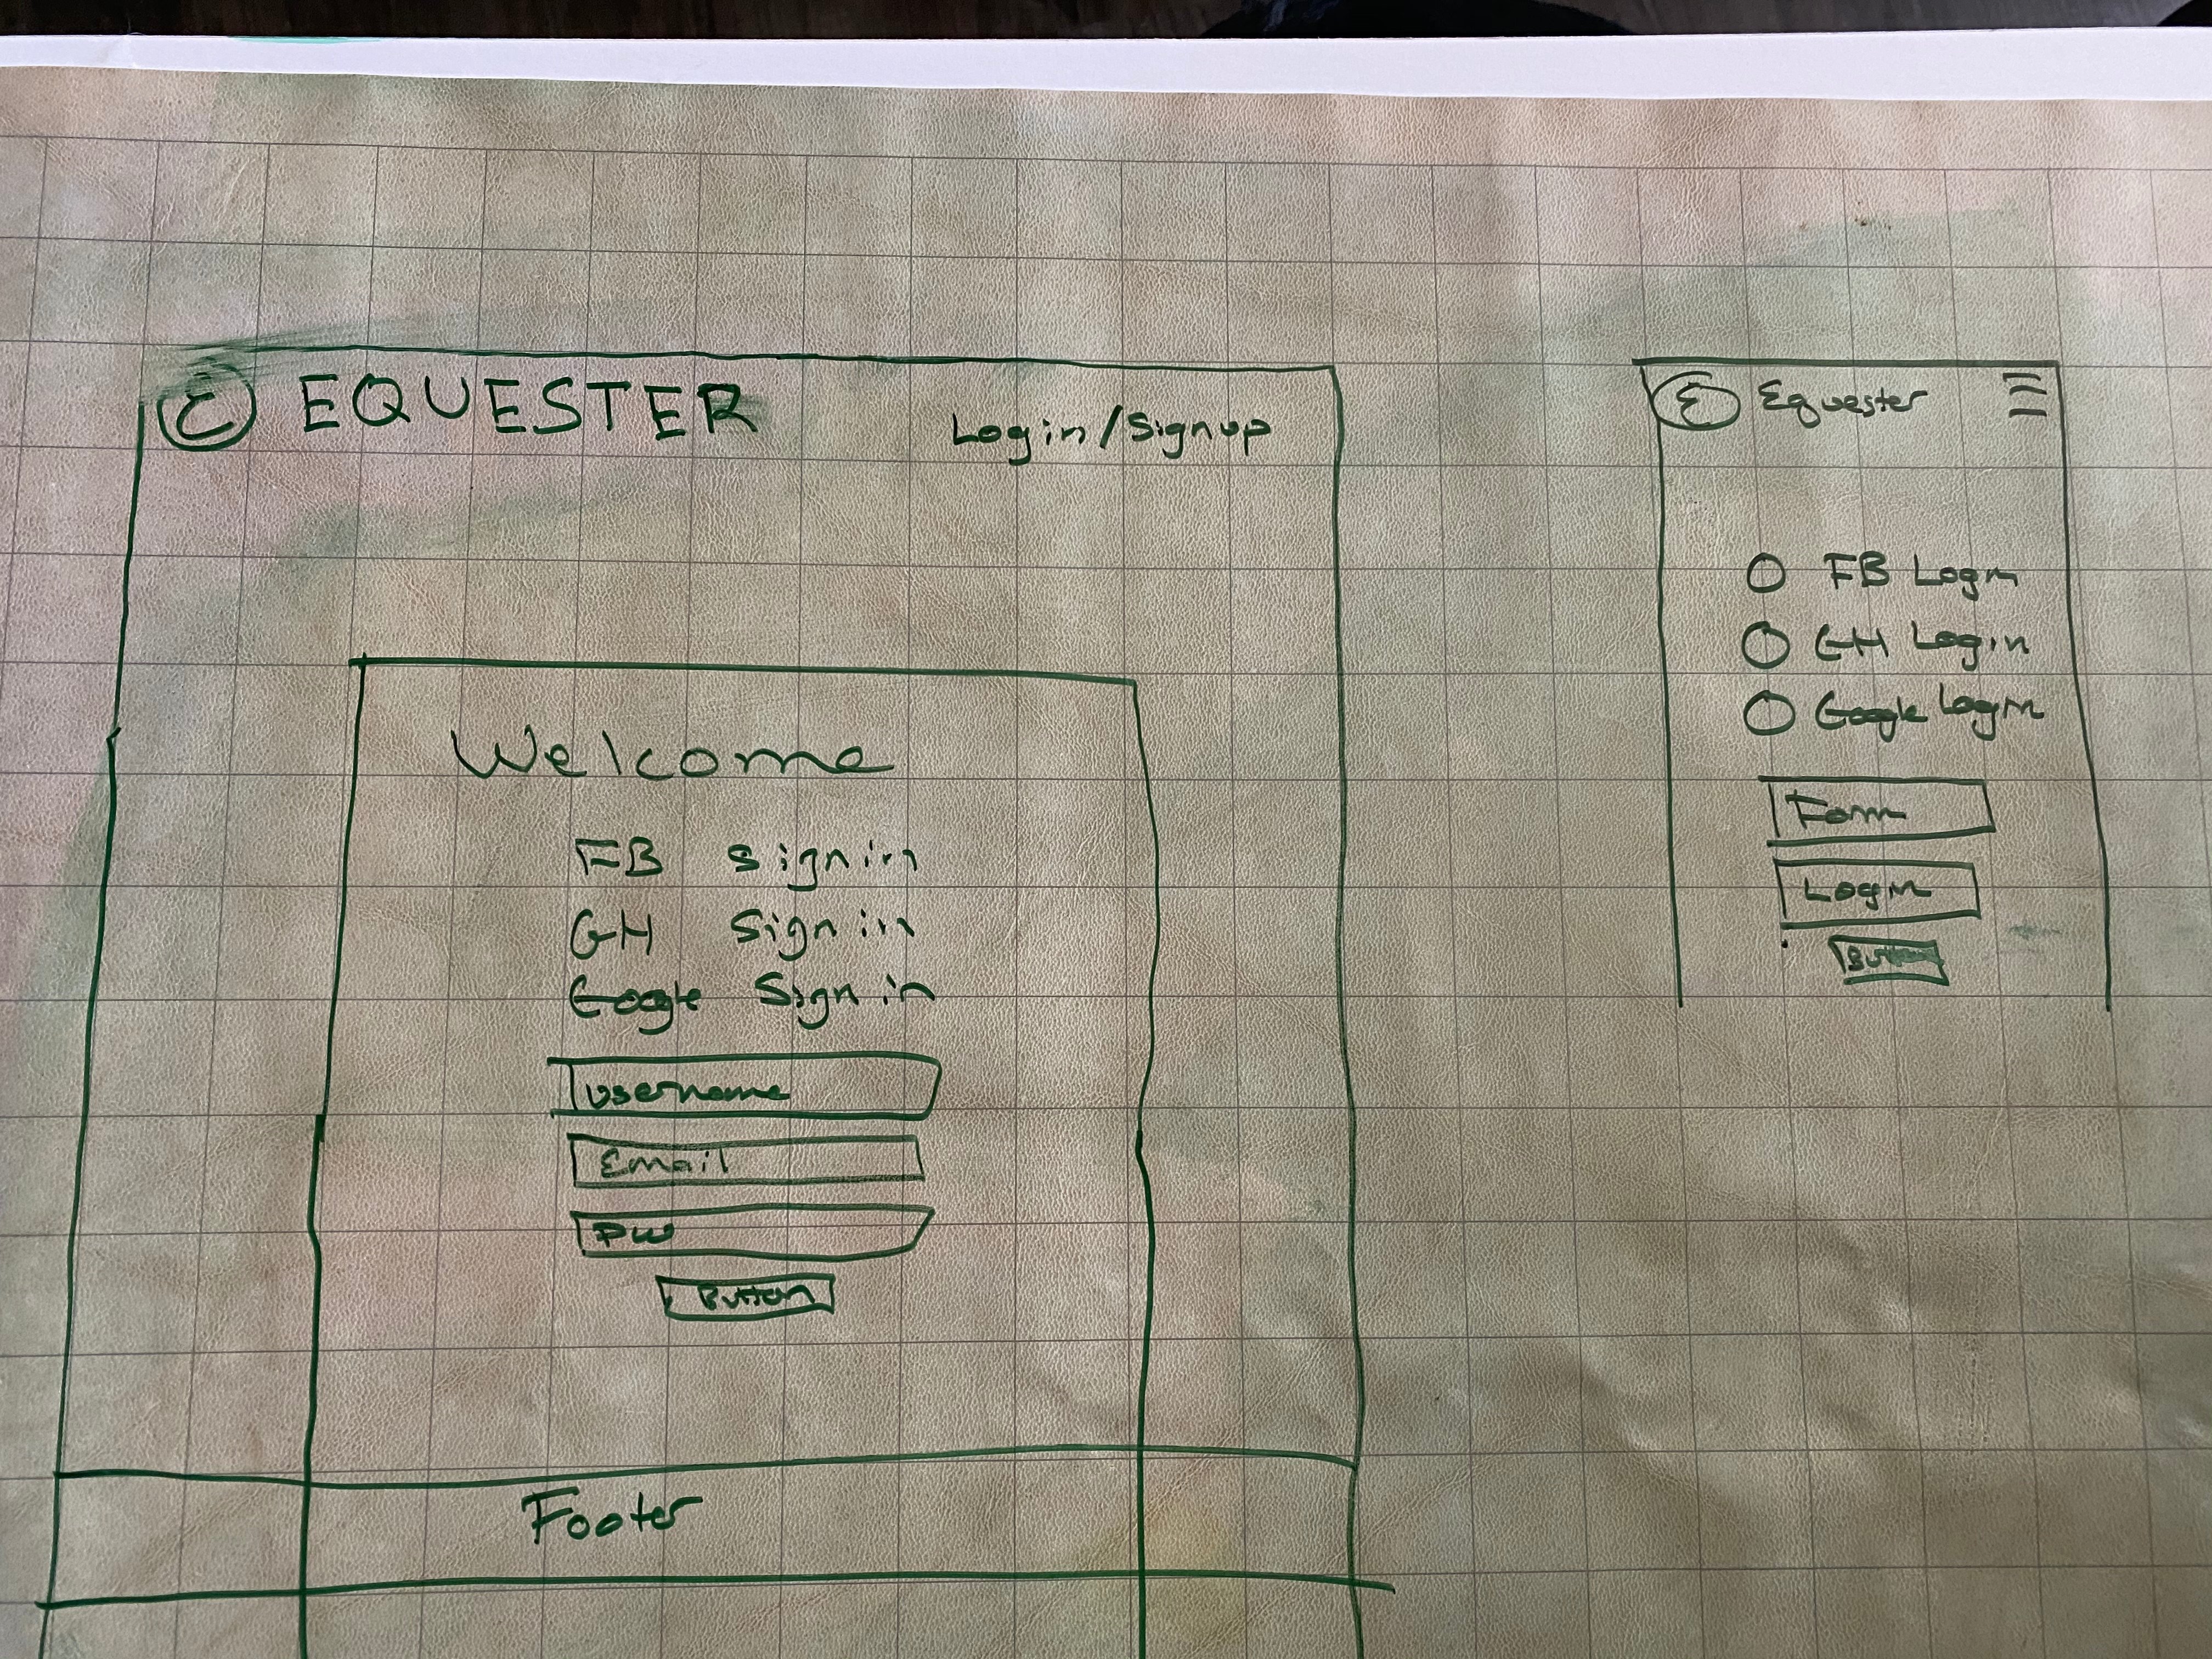 E EQUESTER
Login/Signup
Welcome
FB Sign in
GH Sign in
Google Sign in
Username
Email
PW
Button
Footer
E Equester
FB Login
GH Login
Google Login
Form
Login
Button